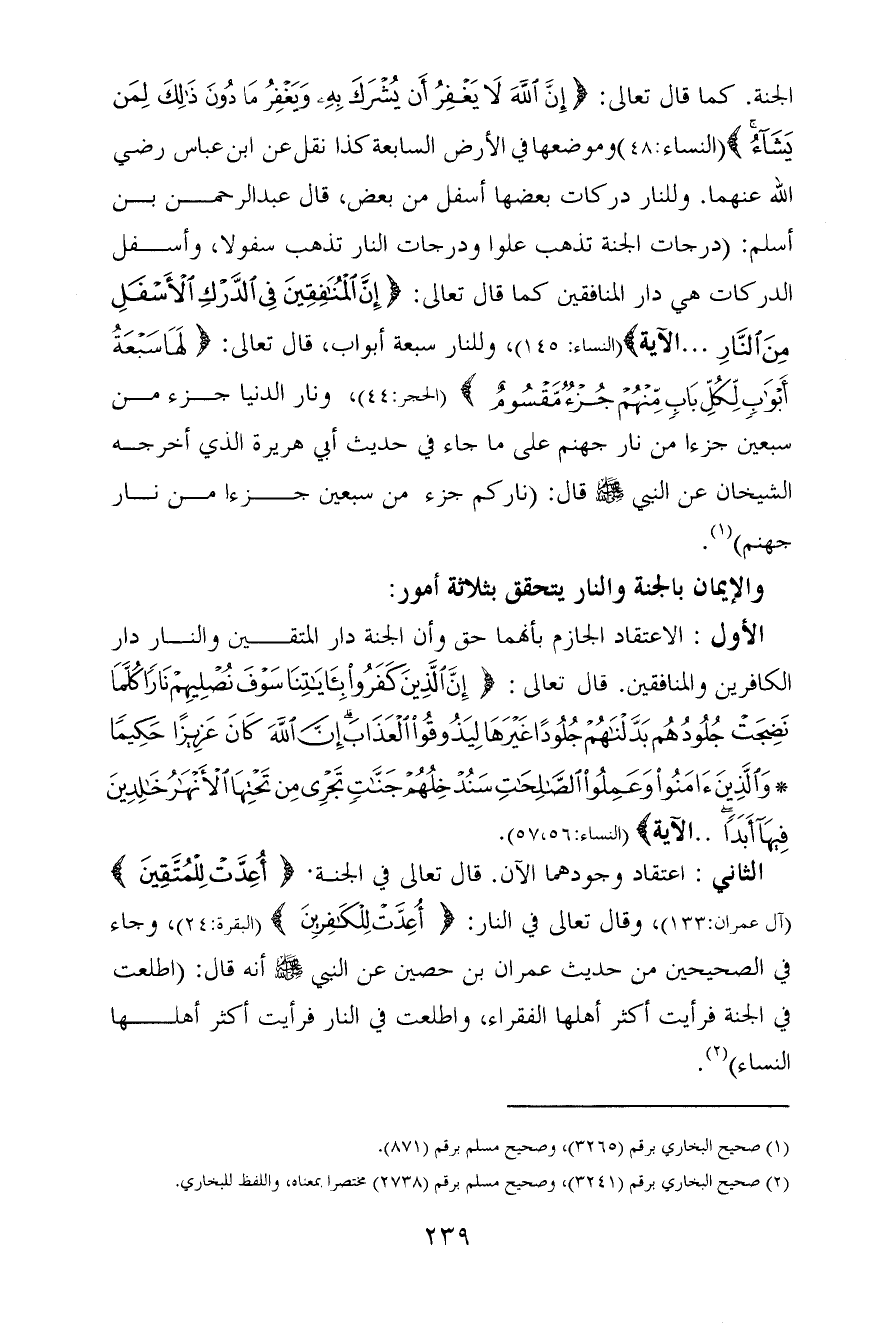 الجنة. كما قال تعالى: ﴿ إِنَّ ٱللَّهَ لَا يَغْفِرُ أَن يُشْرَكَ بِهِۦ وَيَغْفِرُ مَا دُونَ ذَٰلِكَ لِمَن
يَشَآءُ ۚ ﴾(النساء:٤٨)وموضعها في الأرض السابعة كذا نقل عن ابن عباس رضي
الله عنهما. وللنار دركات بعضها أسفل من بعض، قال عبدالرحمن بن
أسلم: (درجات الجنة تذهب علوا ودرجات النار تذهب سفولا، وأسفل
الدركات هي دار المنافقين كما قال تعالى: ﴿ إِنَّ ٱلْمُنَٰفِقِينَ فِى ٱلدَّرْكِ ٱلْأَسْفَلِ
مِنَ ٱلنَّارِ ...الآية﴾(النساء: ١٤٥)، وللنار سبعة أبواب، قال تعالى: ﴿ لَهَا سَبْعَةُ
أَبْوَٰبٍ لِّكُلِّ بَابٍ مِّنْهُمْ جُزْءٌ مَّقْسُومٌ ﴾ (الحجر:٤٤)، ونار الدنيا جزء من
سبعين جزءا من نار جهنم على ما جاء في حديث أبي هريرة الذي أخرجه
الشيخان عن النبي ﷺ قال: (ناركم جزء من سبعين جزءا من نار
جهنم)(١).
والإيمان بالجنة والنار يتحقق بثلاثة أمور:
الأول : الاعتقاد الجازم بأنهما حق وأن الجنة دار المتقين والنار دار
الكافرين والمنافقين. قال تعالى : ﴿ إِنَّ ٱلَّذِينَ كَفَرُوا۟ بِـَٔايَٰتِنَا سَوْفَ نُصْلِيهِمْ نَارًا كُلَّمَا
نَضِجَتْ جُلُودُهُم بَدَّلْنَٰهُمْ جُلُودًا غَيْرَهَا لِيَذُوقُوا۟ ٱلْعَذَابَ ۗ إِنَّ ٱللَّهَ كَانَ عَزِيزًا حَكِيمًا
* وَٱلَّذِينَ ءَامَنُوا۟ وَعَمِلُوا۟ ٱلصَّٰلِحَٰتِ سَنُدْخِلُهُمْ جَنَّٰتٍ تَجْرِى مِن تَحْتِهَا ٱلْأَنْهَٰرُ خَٰلِدِينَ
فِيهَآ أَبَدًا ۖ ..الآية﴾ (النساء:٥٦،٥٧).
الثاني : اعتقاد وجودهما الآن. قال تعالى في الجنة: ﴿ أُعِدَّتْ لِلْمُتَّقِينَ ﴾
(آل عمران:١٣٣)، وقال تعالى في النار: ﴿ أُعِدَّتْ لِلْكَٰفِرِينَ ﴾ (البقرة:٢٤)، وجاء
في الصحيحين من حديث عمران بن حصين عن النبي ﷺ أنه قال: (اطلعت
في الجنة فرأيت أكثر أهلها الفقراء، واطلعت في النار فرأيت أكثر أهلها
النساء)(٢).
(١) صحيح البخاري برقم (٣٢٦٥)، وصحيح مسلم برقم (٨٧١).
(٢) صحيح البخاري برقم (٣٢٤١)، وصحيح مسلم برقم (٢٧٣٨) مختصرا بمعناه، واللفظ للبخاري.
٢٣٩